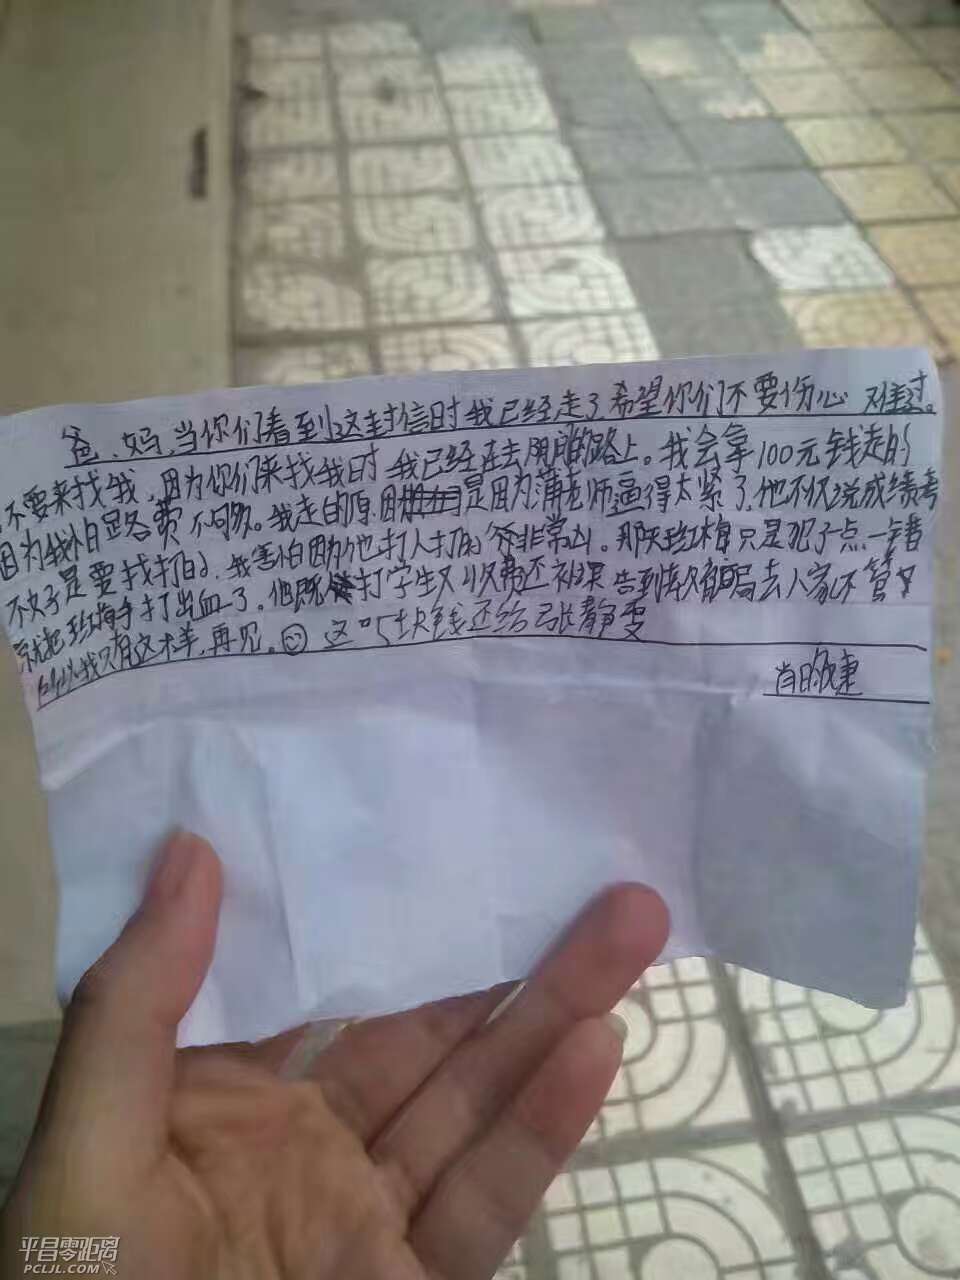 爸、妈,当你们看到这封信时我已经走了希望你们不要伤心 难过。
不要来找我,因为你们来找我时 我已经在去的路上。我会拿100元钱走的
因为我怕路费不够。我走的原因是因为蒲老师逼得太紧了,他不仅说成绩考
不好是要找打的,我害怕因为他打人打的 非常凶。那天红梅只是犯了一点错
就把红梅手打出血了。他既打学生又收费还补课 告到教育局去人家不管
所以我只有这样,再见。这 块钱还给张静雯
肖
平昌零距离
PCLJL.COM